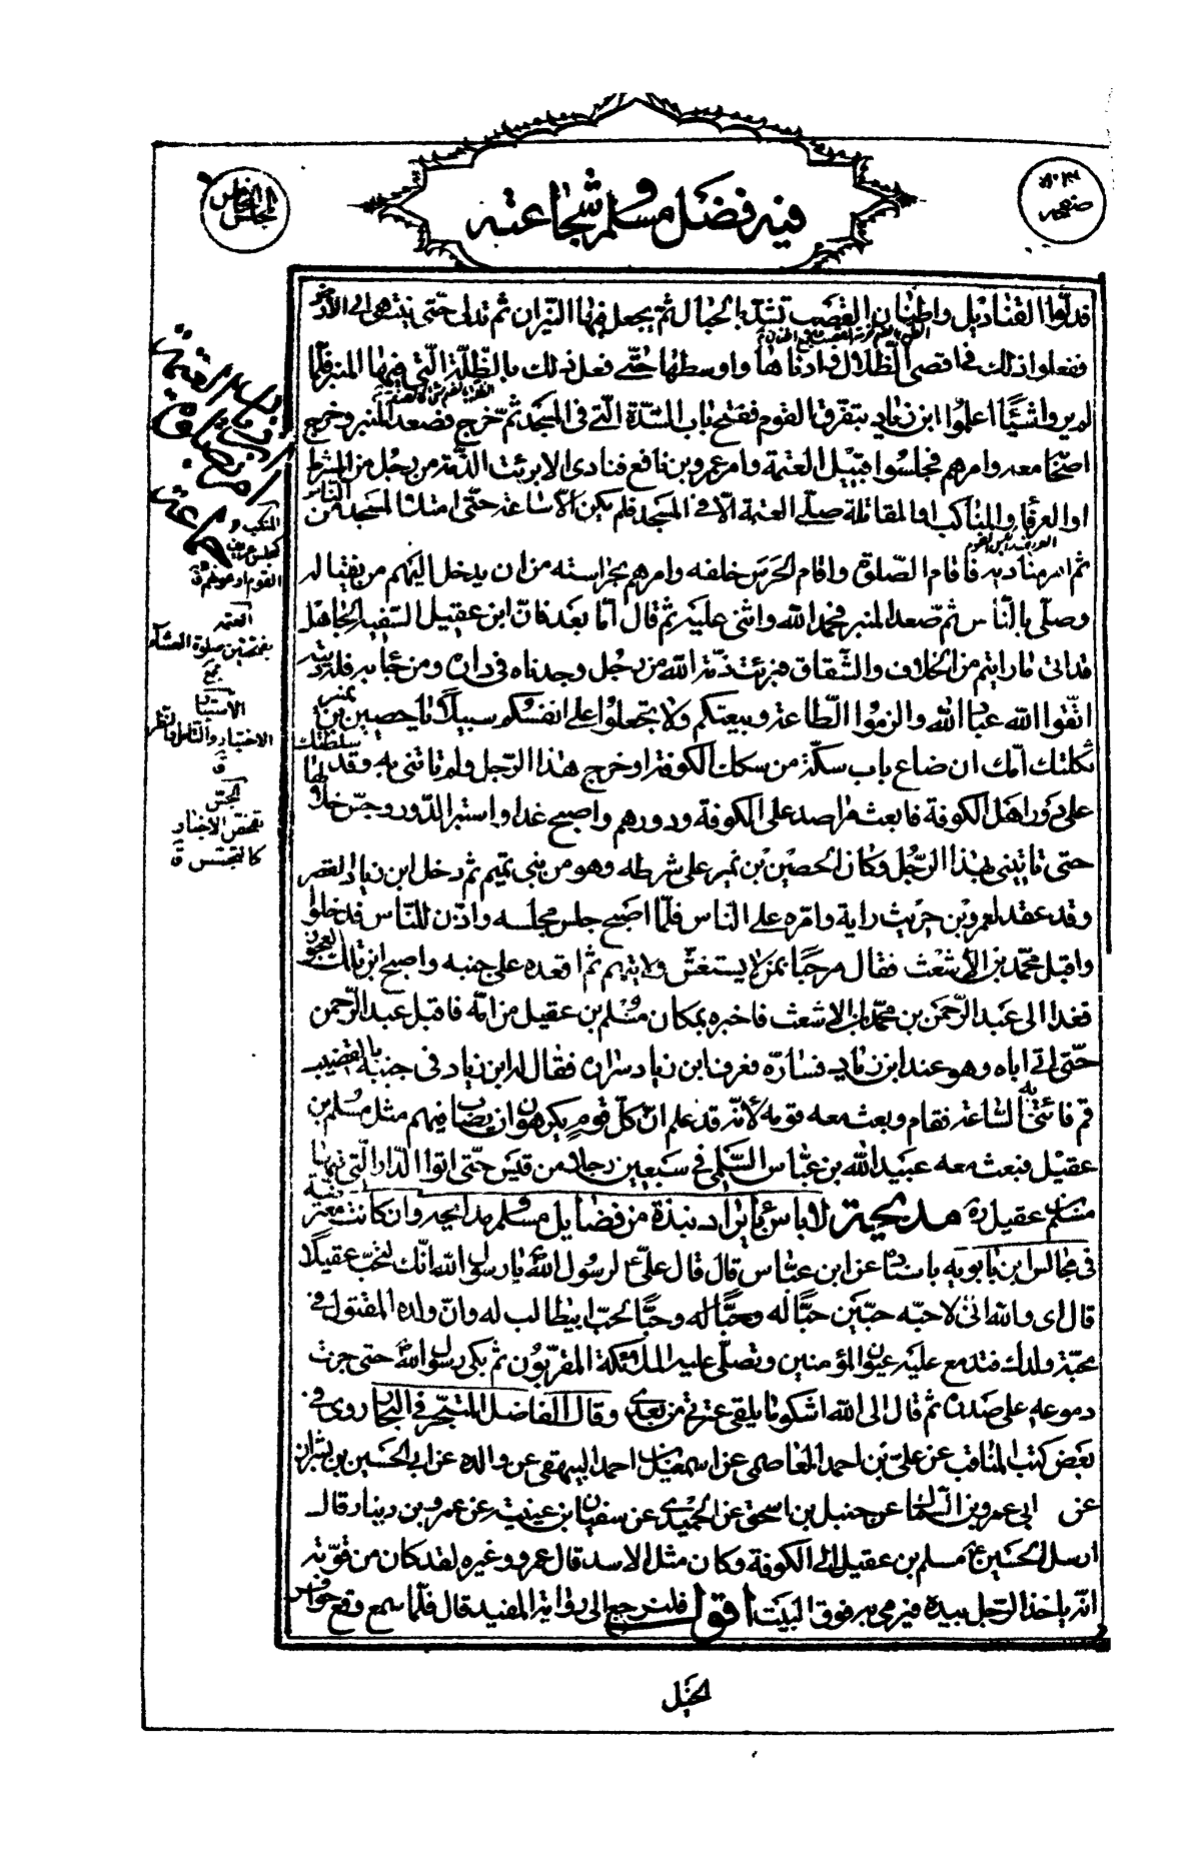 فيه فضل مسلم و شجاعته
صفحه
المجلس الخامس
فدلّوا القناديل واطنان القصب تشدّ بالحبال ثم يجعل فيها النيران ثم تدلى حتّى ينتهى الى الأرض
ففعلوا ذلك فى اقصى الظّلال وادناها واوسطها حتّى فعل ذلك بالظّلّة الّتى فيها المنبر فلمّا
لم يروا شيئًا اعلموا ابن زياد بتفرّق القوم ففتح باب السّدّة الّتى فى المسجد ثم خرج فصعد المنبر وخرج
اصحابه معه وامرهم فجلسوا قبيل العتمة وامر عمرو بن نافع فنادى الا برئت الذّمّة من رجل من الشّرط
او العرفاء والمناكب او المقاتلة صلّى العتمة الّا فى المسجد فلم يكن الّا ساعة حتّى امتلا المسجد من الناس
ثم امر مناديه فاقام الصّلوة واقام الحرس خلفه وامرهم بحراسته من ان يدخل اليهم من يغتاله
وصلّى بالنّاس ثم صعد المنبر فحمد الله واثنى عليه ثم قال امّا بعد فانّ ابن عقيل السّفيه الجاهل
قد اتى ما رايتم من الخلاف والشّقاق فبرئت ذمّة الله من رجل وجدناه فى داره ومن جاء به فله ديته
اتّقوا الله عباد الله والزموا الطّاعة وبيعتكم ولا تجعلوا على انفسكم سبيلًا يا حصين بن نمير
ثكلتك امّك ان ضاع باب سكّة من سكك الكوفة او خرج هذا الرّجل ولم تاتنى به وقد سلّطتك
على دور اهل الكوفة فابعث مراصد على الكوفة ودورهم واصبح غدا واستبرء الدّور وجسّ خلالها
حتى تاتينى بهذا الرّجل وكان الحصين بن نمير على شرطه وهو من بنى تميم ثم دخل ابن زياد القصر
وقد عقد لعمرو بن حريث راية وامّره على النّاس فلمّا اصبح جلس مجلسه واذن للنّاس فدخلوا
واقبل محمّد بن الاشعث فقال مرحبًا بمن لا يستغشّ ولا يتهم ثم اقعده على جنبه واصبح ابن تلك العجوز
فغدا الى عبد الرّحمن بن محمّد بن الاشعث فاخبره بمكان مسلم بن عقيل من امّه فاقبل عبد الرّحمن
حتّى اتى اباه وهو عند ابن زياد فسارّه فعرف ابن زياد سراره فقال له ابن زياد فى جنبه بالقضيب
قم فائتنى به السّاعة فقام وبعث معه قومه لأنّه قد علم انّ كلّ قوم يكرهون ان يصاب فيهم مثل مسلم بن
عقيل فبعث معه عبيد الله بن عبّاس السّلمى فى سبعين رجلا من قيس حتّى اتوا الدّار الّتى فيها
مسلم بن عقيل ره مديحة لا باس بايراد نبذة من فضايل مسلم
فى مجالس ابن بابويه باسناده عن ابن عبّاس قال قال علىّ ع لرسول الله ص يا رسول الله انّك لتحبّ عقيلًا
قال اى والله انّى لاحبّه حبّين حبًّا له وحبًّا لحبّ ابيطالب له وانّ ولده المقتول فى
محبّة ولدك فتدمع عليه عيون المؤمنين وتصلّى عليه الملئكة المقرّبون ثم بكى رسول الله حتى جرت
دموعه على صدره ثم قال الى الله اشكو ما يلقى عترتى من بعدى وقال الفاضل المتبحّر فى البحار روى فى
بعض كتب المناقب عن علىّ بن احمد العاصمى عن اسمعيل بن احمد البيهقى عن والده عن ابى الحسين بن بشران
عن ابى عمرو بن السّمّاك عن حنبل بن اسحق عن الحميدى عن سفيان بن عيينة عن عمرو بن دينار قال
ارسل الحسين ع مسلم بن عقيل الى الكوفة وكان مثل الاسد قال عمرو وغيره لقد كان من قوّته
انّه ياخذ الرّجل بيده فيرمى به فوق البيت اقول فلنرجع الى رواية المفيد قال فلمّا سمع وقع حوافر
الخيل
العتمة
بفتحتين صلوة العشاء
الاختبار والتّامل والنّظر
الجسّ
تفحّص الاخبار
كالتجسّس ق